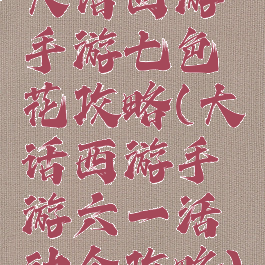 大话西游
手游七色
花攻略(大
话西游手
游六一活
动全攻略)